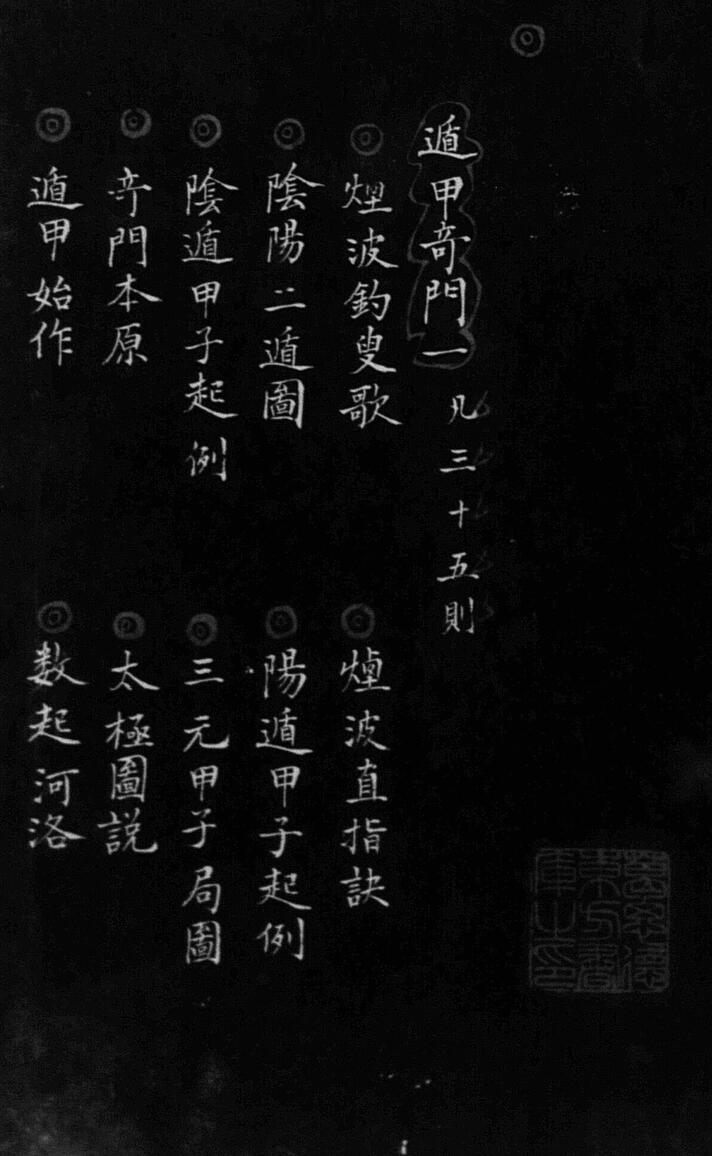 遁甲奇門一 凡三十五則
煙波釣叟歌
煙波直指訣
陰陽二遁圖
陽遁甲子起例
陰遁甲子起例
三元甲子局圖
奇門本原
太極圖説
遁甲始作
数起河洛